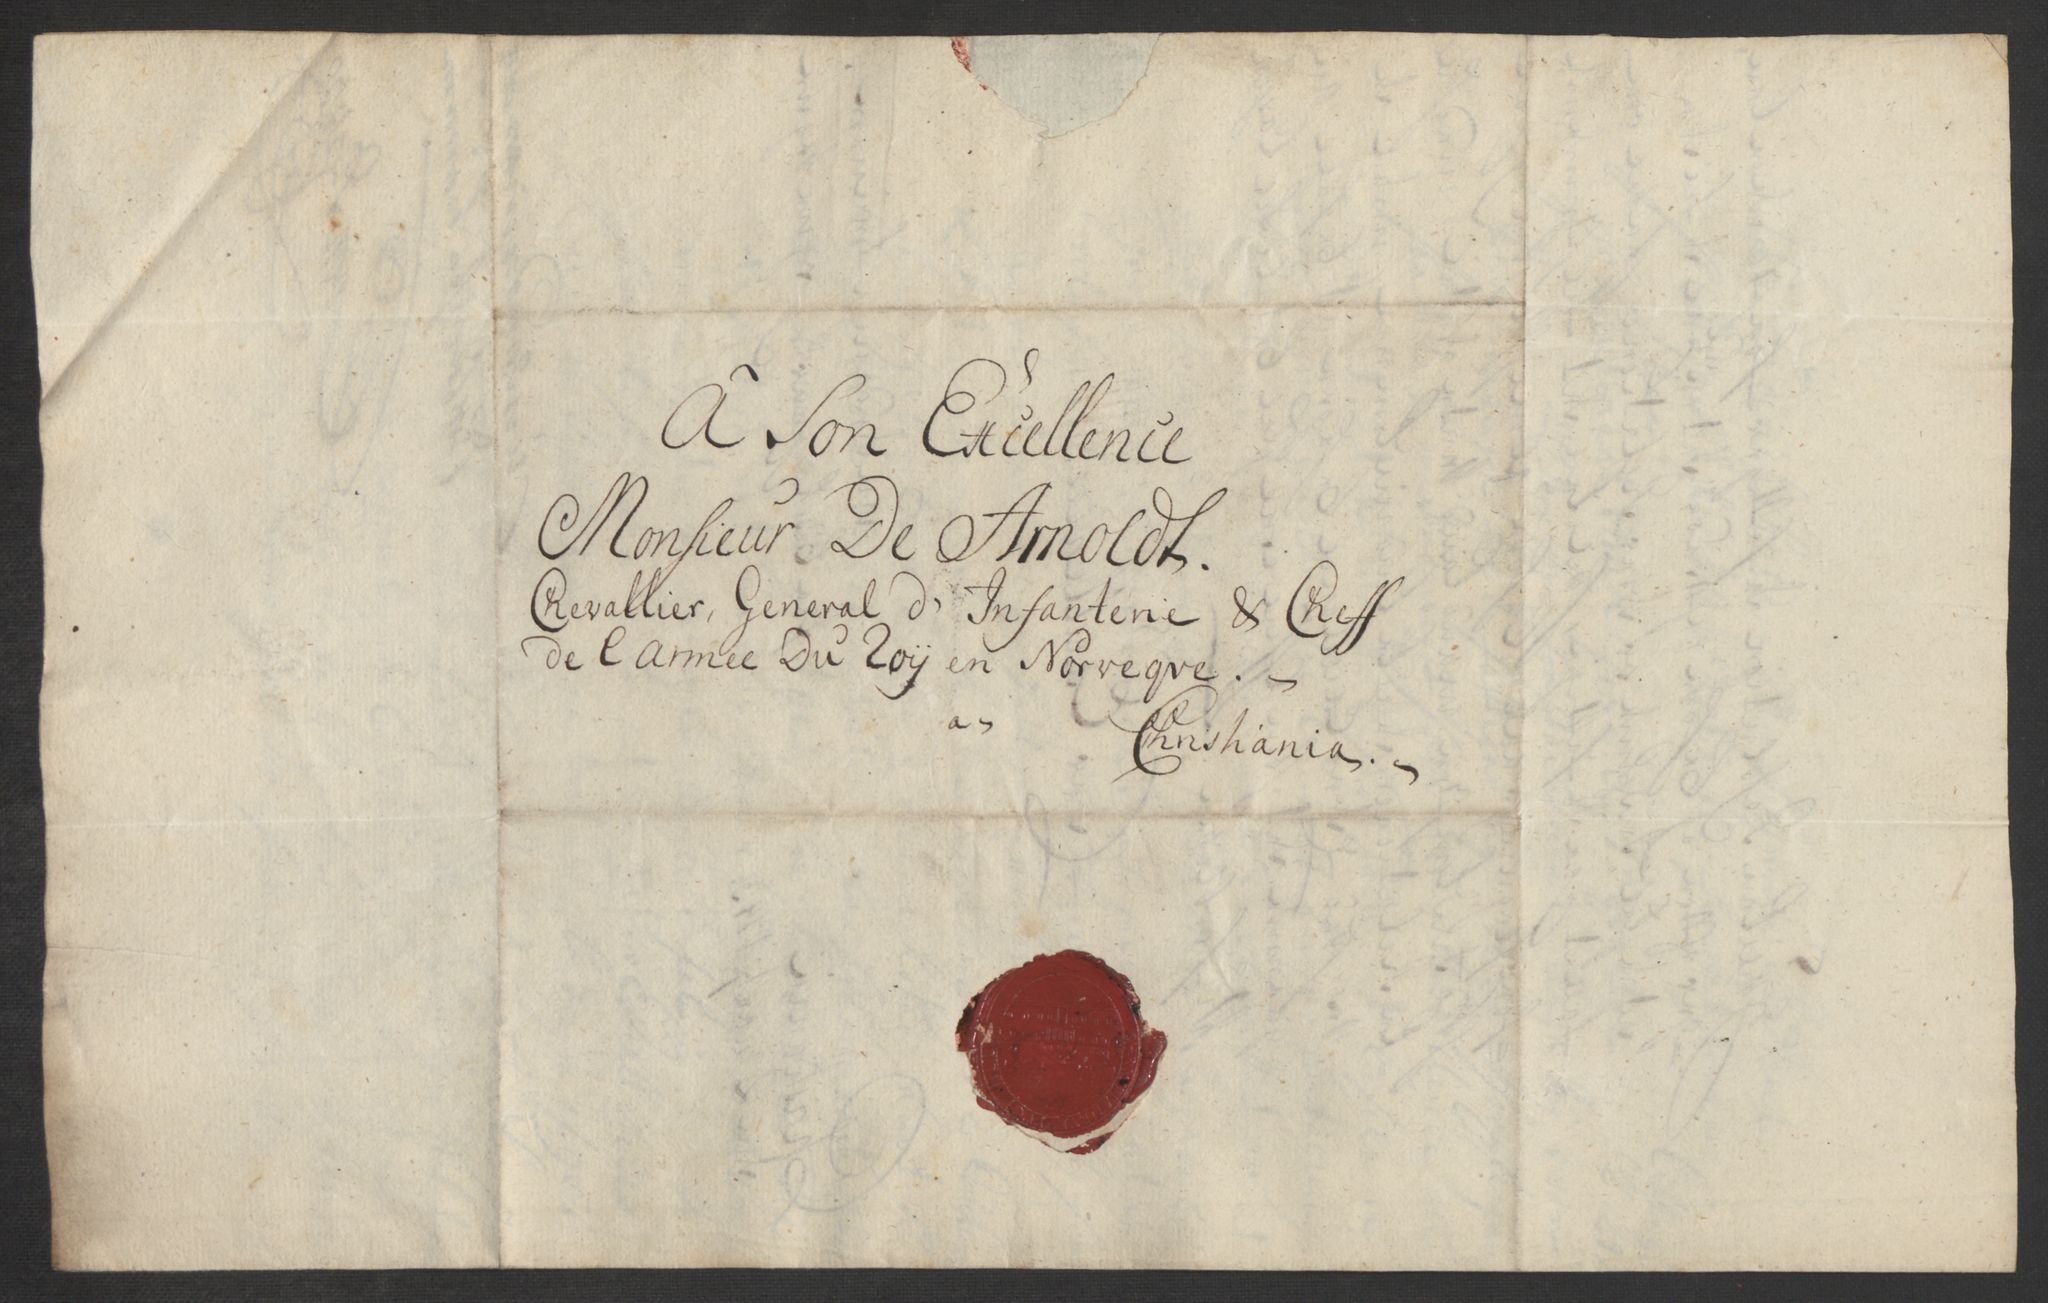 A Son Excellence
Monsieur De Arnoldt.
Chevallier, General d' Infanterie & Cheff
de l'armee Du Roij en Norvegve.
a
Christiania.